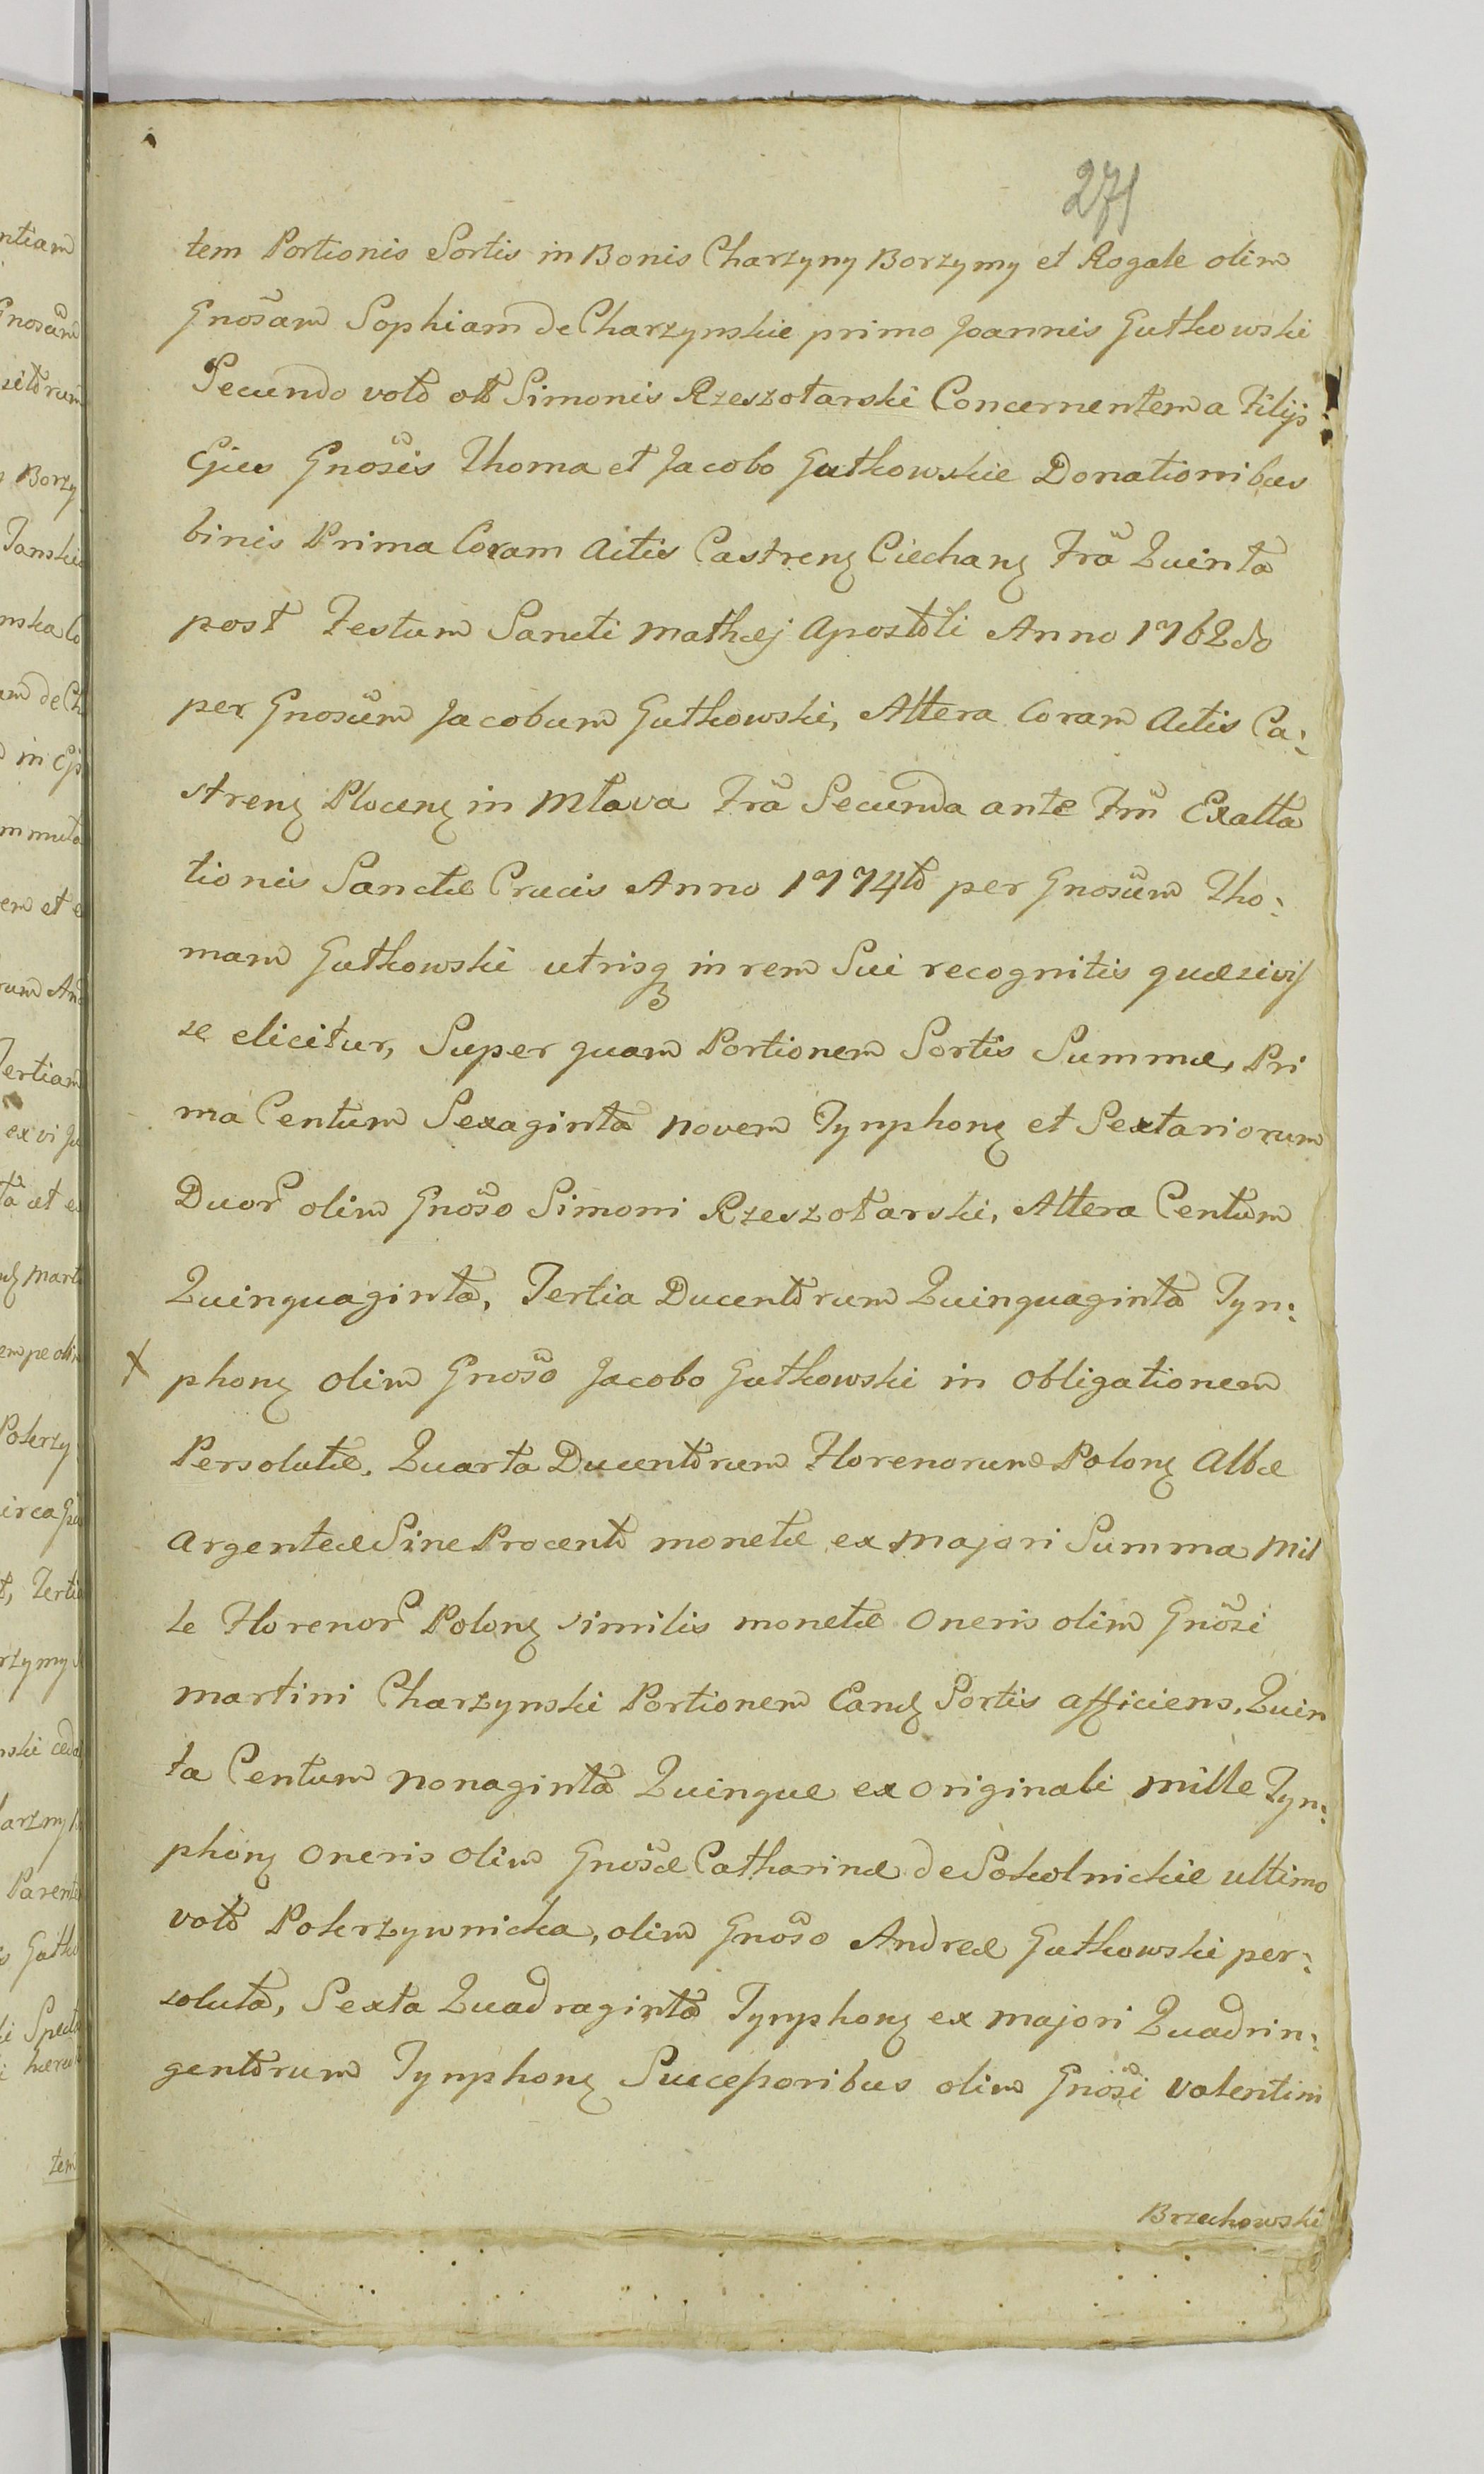 271
tem Portionis Sortis in Bonis Charzyny Borzymy et Rogale olim
Gnosam Sophiam de Charzynskie primo Joannis Gutkowski
Secundo voto olt Simonis Rzeszotarski Concernentem a Filijs
Ejus Gnosis Thoma et Jacobo Gutkowskie Donationibus
binis Prima Coram Actis Castren Ciechan Fra Quinta
post Festum Sancti Mathæj Apostoli Anno 1762do
per Gnosum Jacobum Gutkowski, Altera Coram Actis Ca:
stren Plocen in Mlava Fra Secunda ante Fm Exalta
tionis Sanctæ Crucis Anno 1774to per Gnosum Tho:
mam Gutkowski utrisq in rem Sui recognitis quæsivis
se elicitur, Super quam Portionem Sortis Summæ, Pri
ma Centum Sexaginta novem Tynphon et Sextariorum
Duor olim Gnoso Simoni Rzeszotarski, Altera Centum
Quinquaginta, Tertia Ducentorum Quinquaginta Tyn:
x phon olim Gnoso Jacobo Gutkowski in obligationem
Persolutæ. Quarta Ducentorum Florenorum Polon Albæ
Argenteæ Sine Procento monetæ ex majori Summa Mil
le Florenor Polon similis monetæ oneris olim Gnosi
Martini Charzynski Portionem Eand Sortis afficiens, Quin
ta Centum nonaginta Quinque ex originali mille Tyn:
phon oneris olim Gnosæ Catharinæ de Sokolnickie ultimo
voto Pokrzywnicka, olim Gnoso Andreæ Gutkowski per:
soluta, Sexta Quadraginta Tynphon ex majori Quadrin:
gentorum Tynphon Successoribus olim Gnosi Valentini
Brzechowski
ntiam
Gnosam
Borzy
Tanskie
am de Ch
em et e
rum An
Tertiam
ex vi
Mart
Pokrzy
circa
t, Tertia
rzymy
Parent
tem